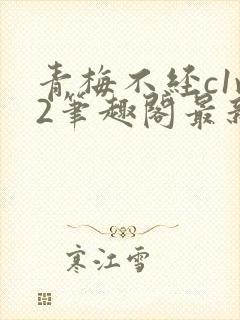 青梅不经c1v
2筆趣阁最新
寒江雪